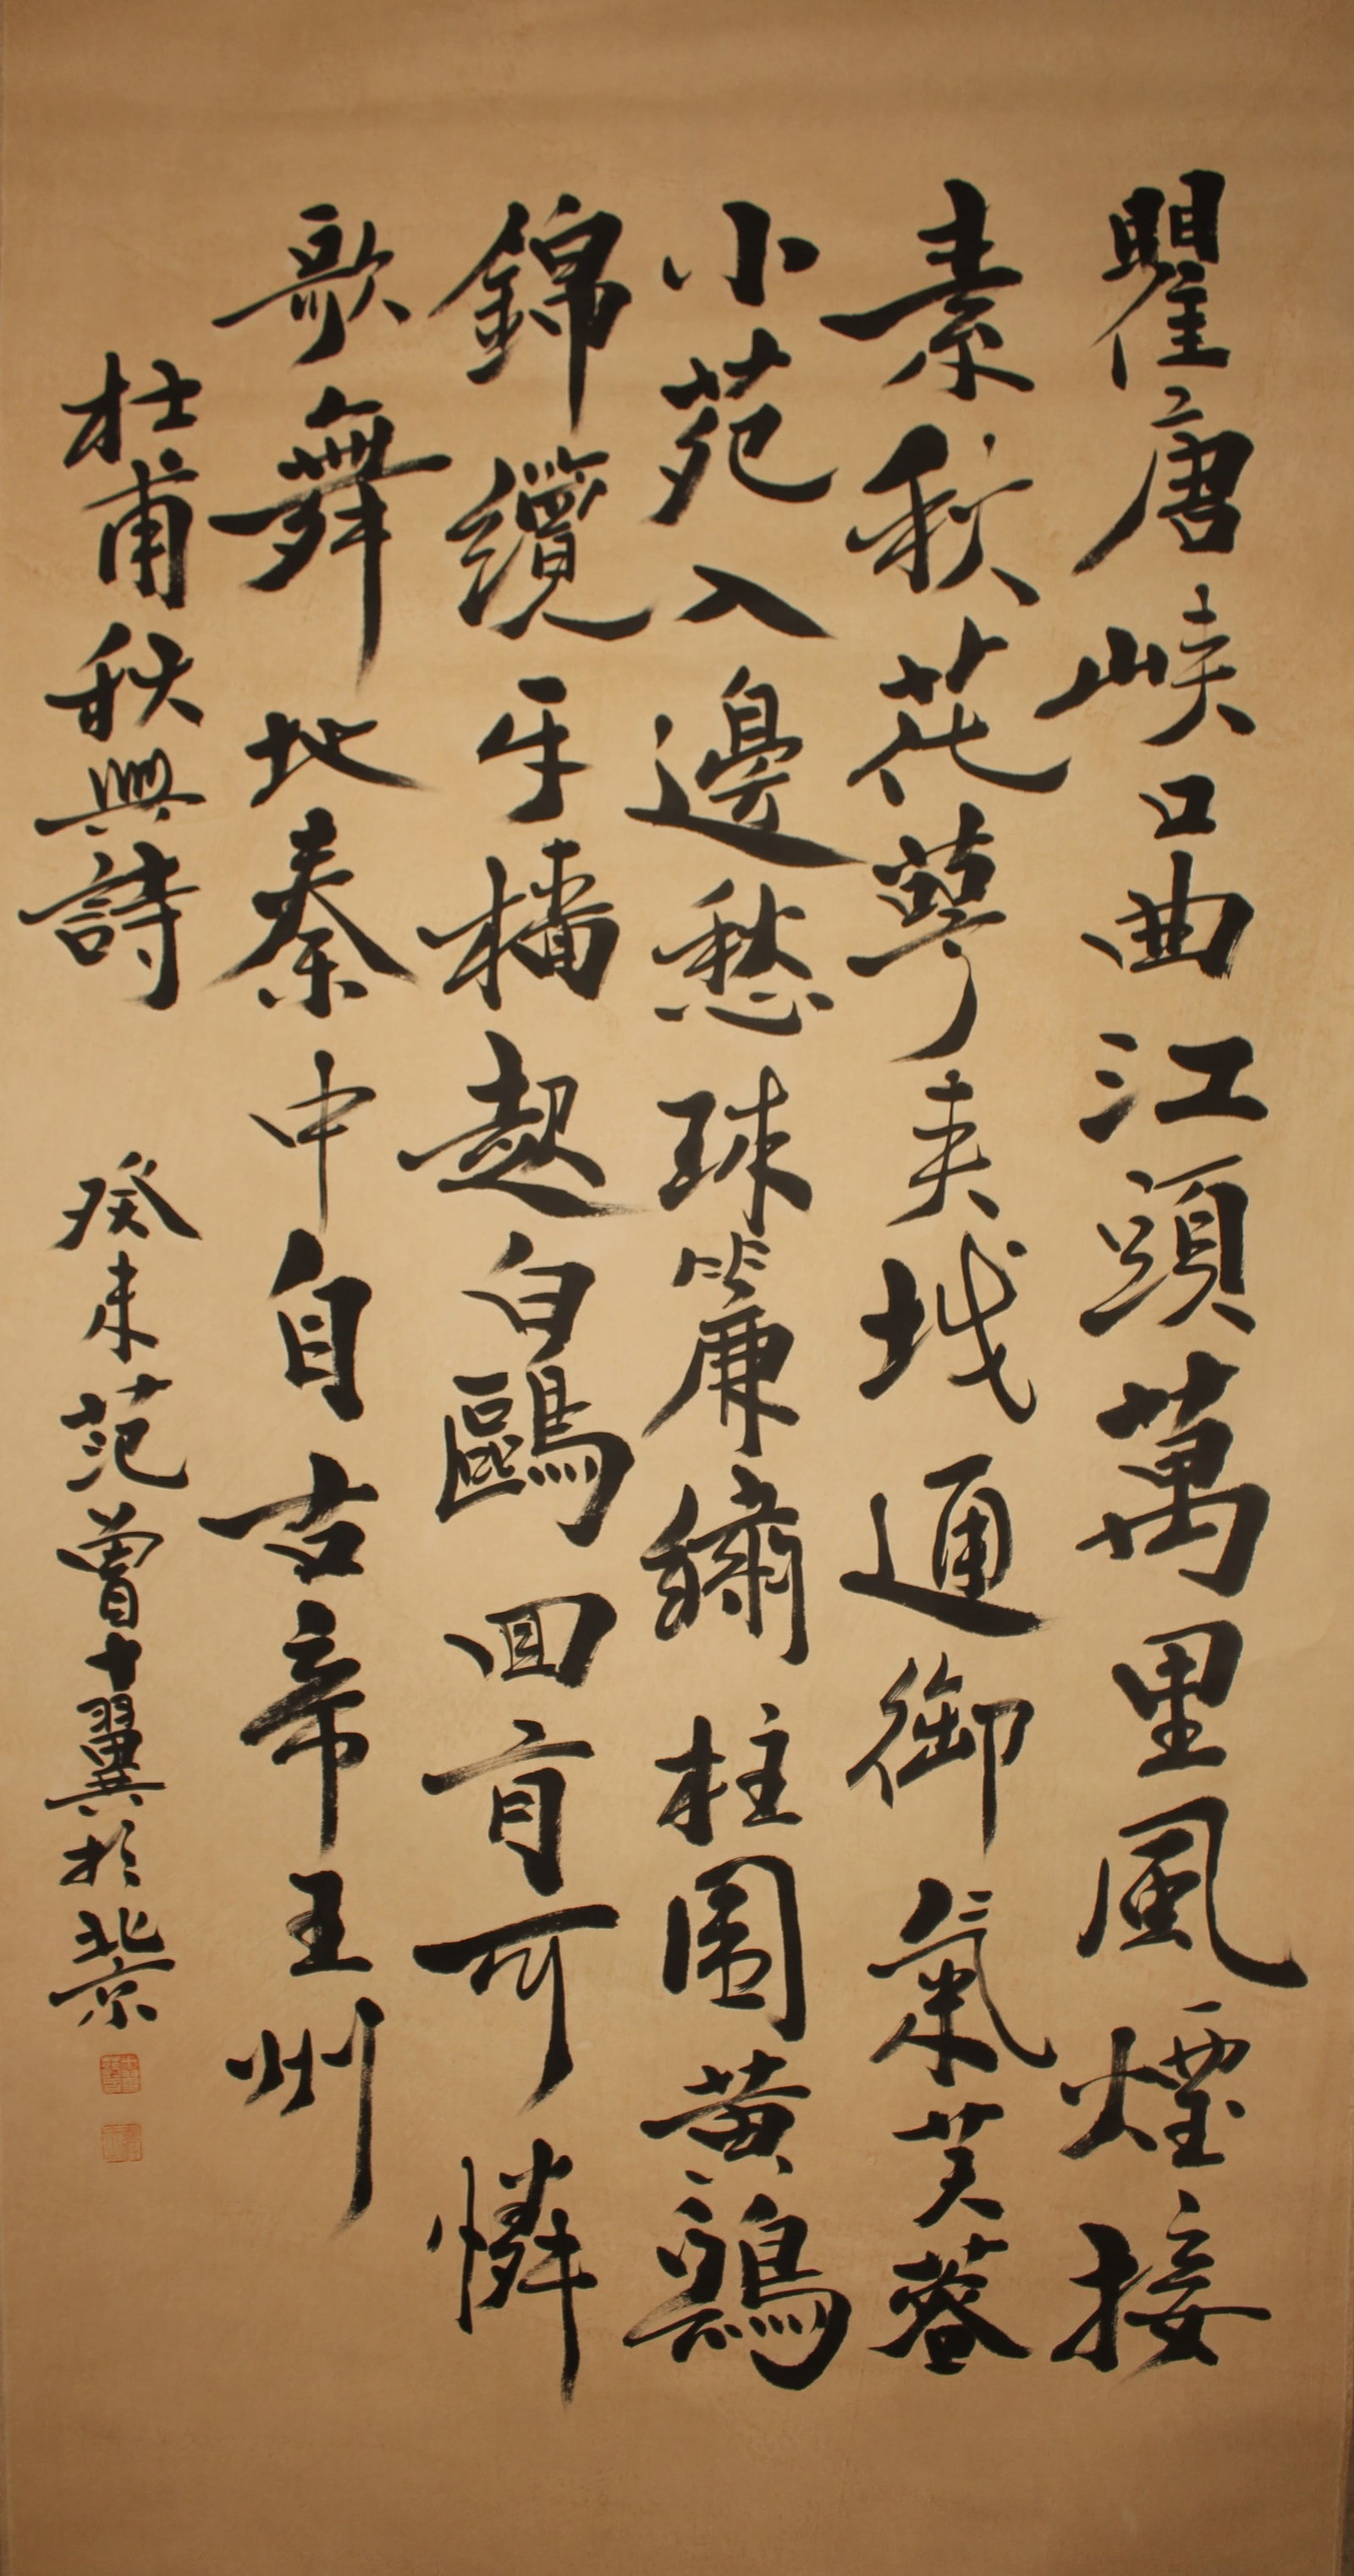 瞿唐峽口曲江頭萬里風煙接
素秋花萼夹城通御氣芙蓉
小苑入邊愁珠簾繡柱圍黄鵠
錦纜牙檣起白鷗回首可憐
歌舞地秦中自古帝王州
杜甫秋興詩 癸未范曾十翼於北京